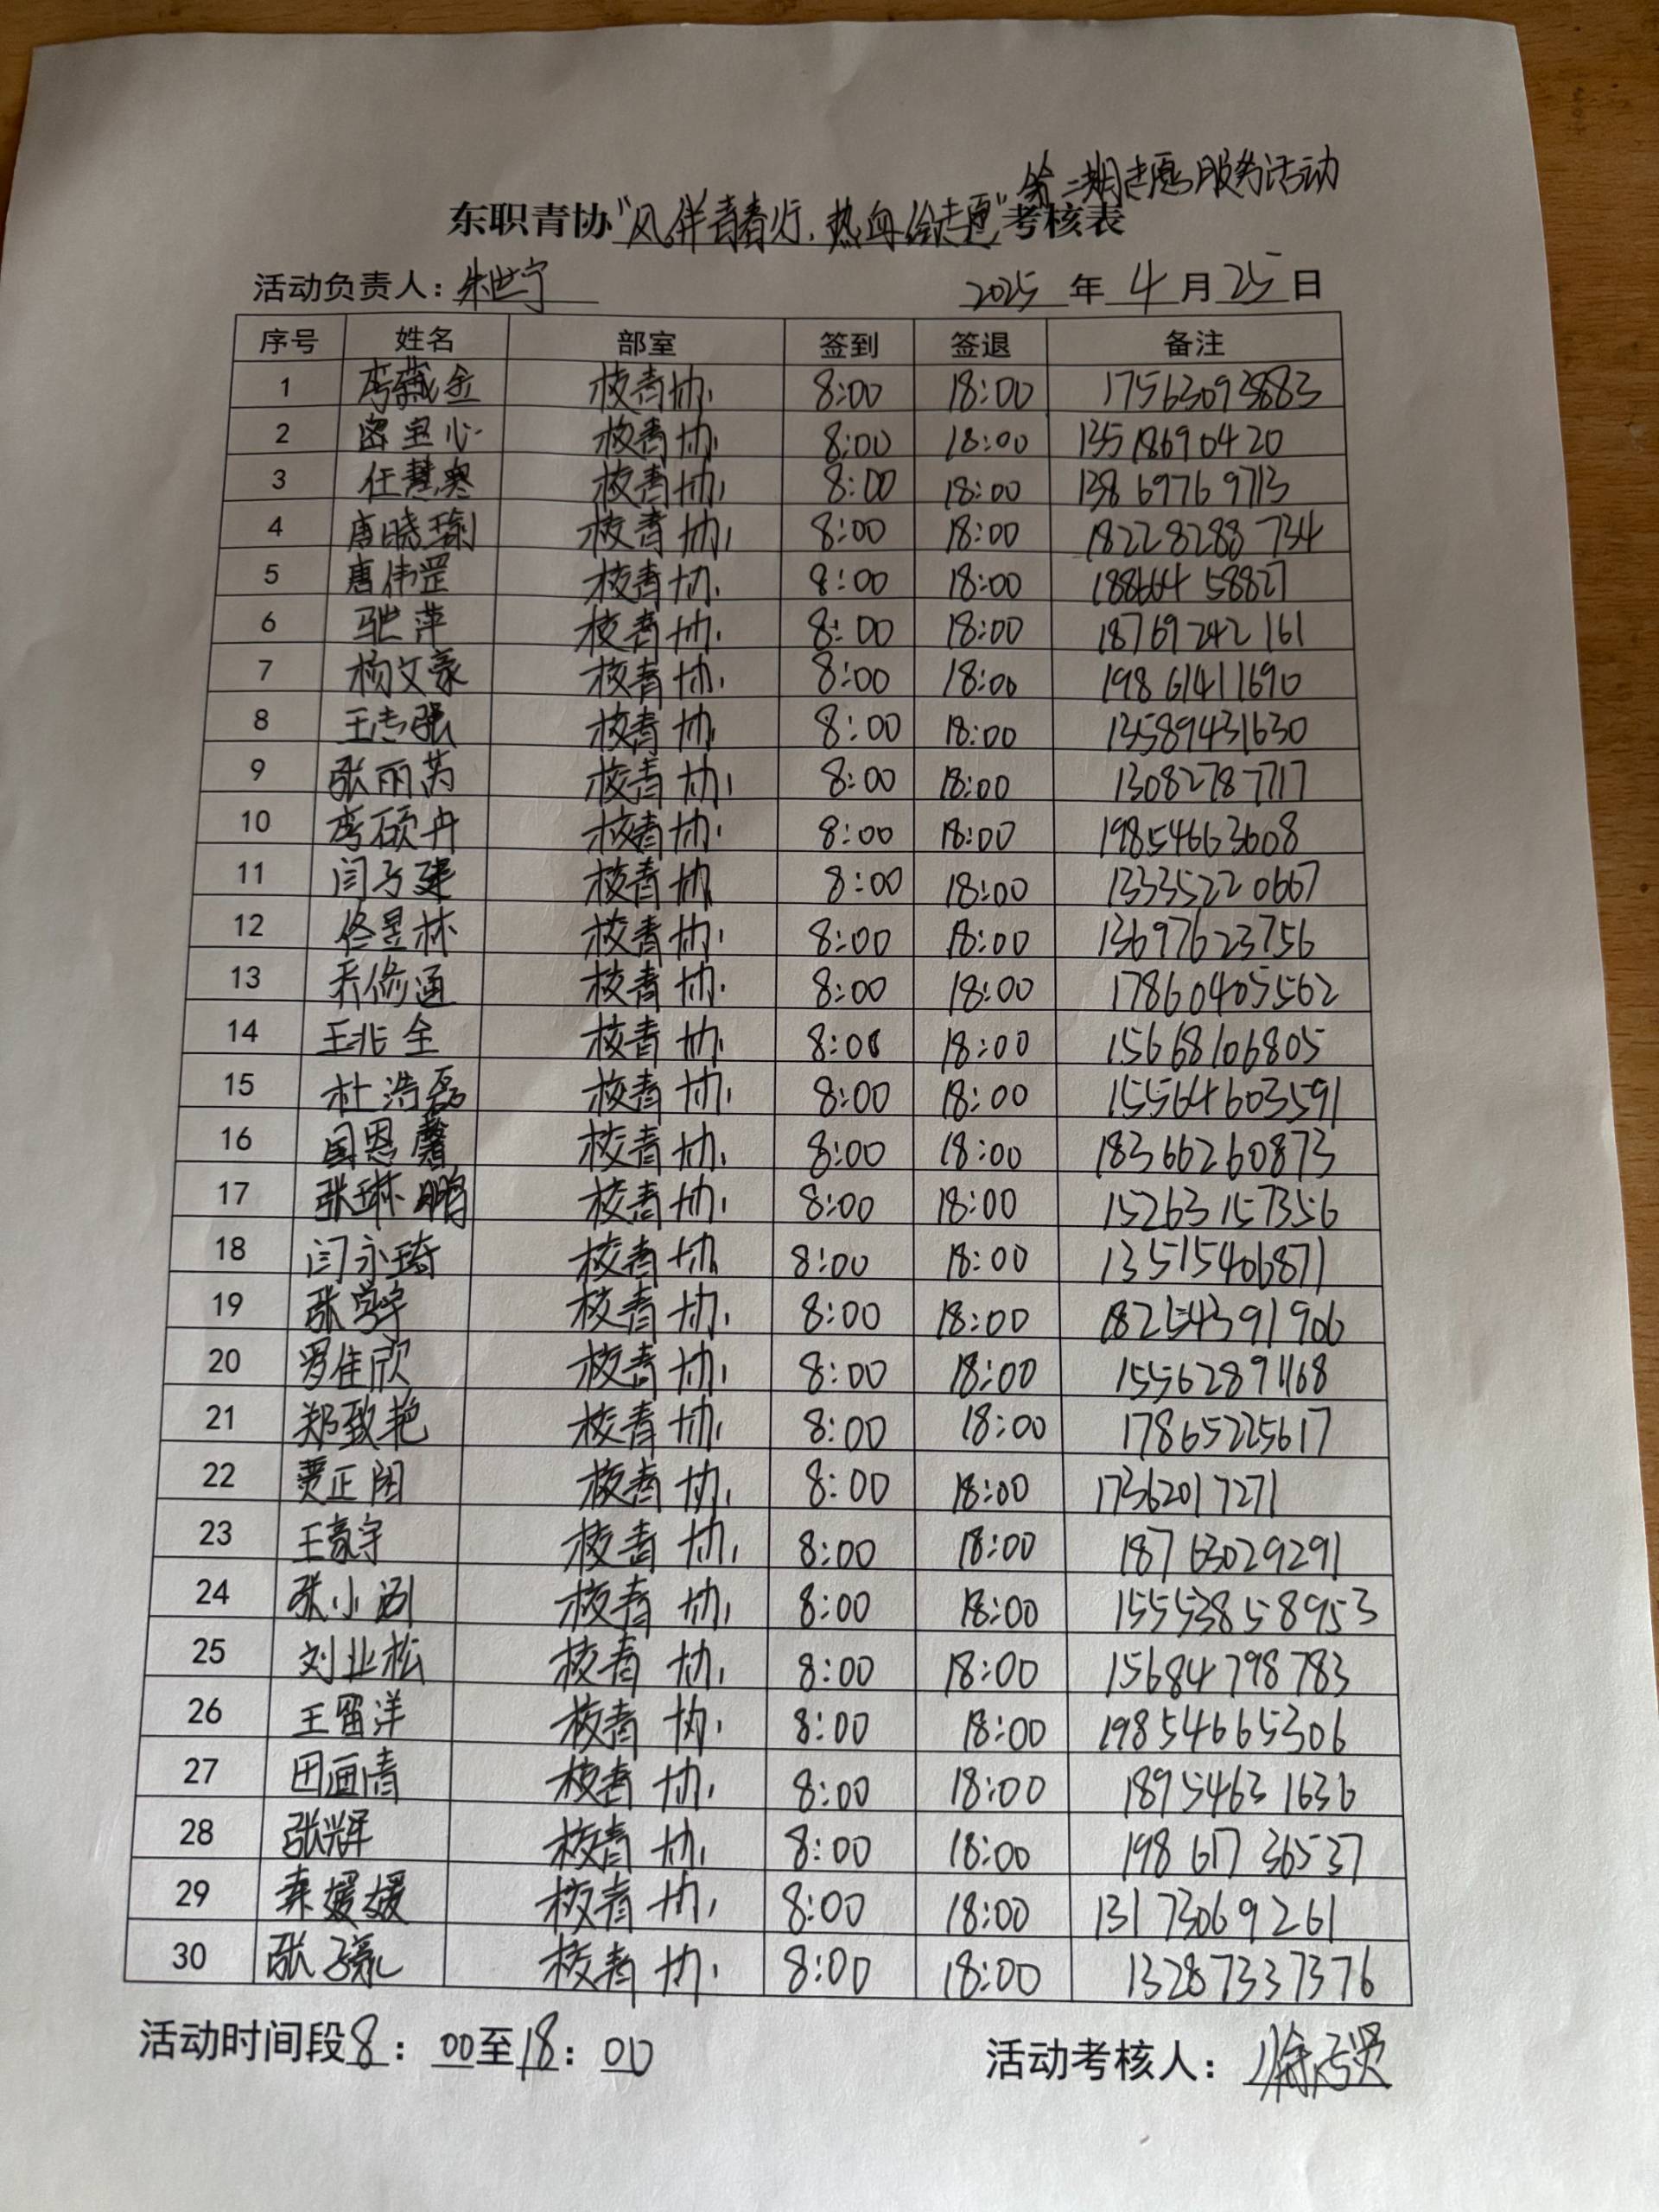 第二期志愿服务活动
东职青协“风伴青春行，热血绘志愿”考核表
活动负责人：朱世宁 2025年4月25日
序号 姓名 部室 签到 签退 备注
1 金 校青协 8:00 18:00 17563093883
2 密宝心 校青协 8:00 18:00 13518690420
3 任慧奥 校青协 8:00 18:00 13869769713
4 唐晓瑜 校青协 8:00 18:00 18228288734
5 唐伟罡 校青协 8:00 18:00 18866458827
6 张萍 校青协 8:00 18:00 18769242161
7 杨文豪 校青协 8:00 18:00 19861411690
8 王志强 校青协 8:00 18:00 13589431630
9 张丽芮 校青协 8:00 18:00 13082787717
10 李硕丹 校青协 8:00 18:00 19854663608
11 闫子建 校青协 8:00 18:00 13335220667
12 佟昱林 校青协 8:00 18:00 13697623756
13 乔修通 校青协 8:00 18:00 17860405562
14 王兆全 校青协 8:00 18:00 15668106805
15 杜浩磊 校青协 8:00 18:00 155564603591
16 国恩馨 校青协 8:00 18:00 18366260873
17 张琳鹏 校青协 8:00 18:00 15263157356
18 闫永琦 校青协 8:00 18:00 13515406871
19 张学宇 校青协 8:00 18:00 18254391906
20 罗佳欣 校青协 8:00 18:00 15562891168
21 郑致艳 校青协 8:00 18:00 17865225617
22 贾正阳 校青协 8:00 18:00 17362017271
23 王豪宇 校青协 8:00 18:00 18763029291
24 张小 校青协 8:00 18:00 15553858953
25 刘业松 校青协 8:00 18:00 15684798783
26 王留洋 校青协 8:00 18:00 19854665306
27 田画清 校青协 8:00 18:00 18954631636
28 张辉 校青协 8:00 18:00 19861736537
29 秦媛媛 校青协 8:00 18:00 13173069261
30 张子豪 校青协 8:00 18:00 13287337376
活动时间段8：00至18：00 活动考核人：徐